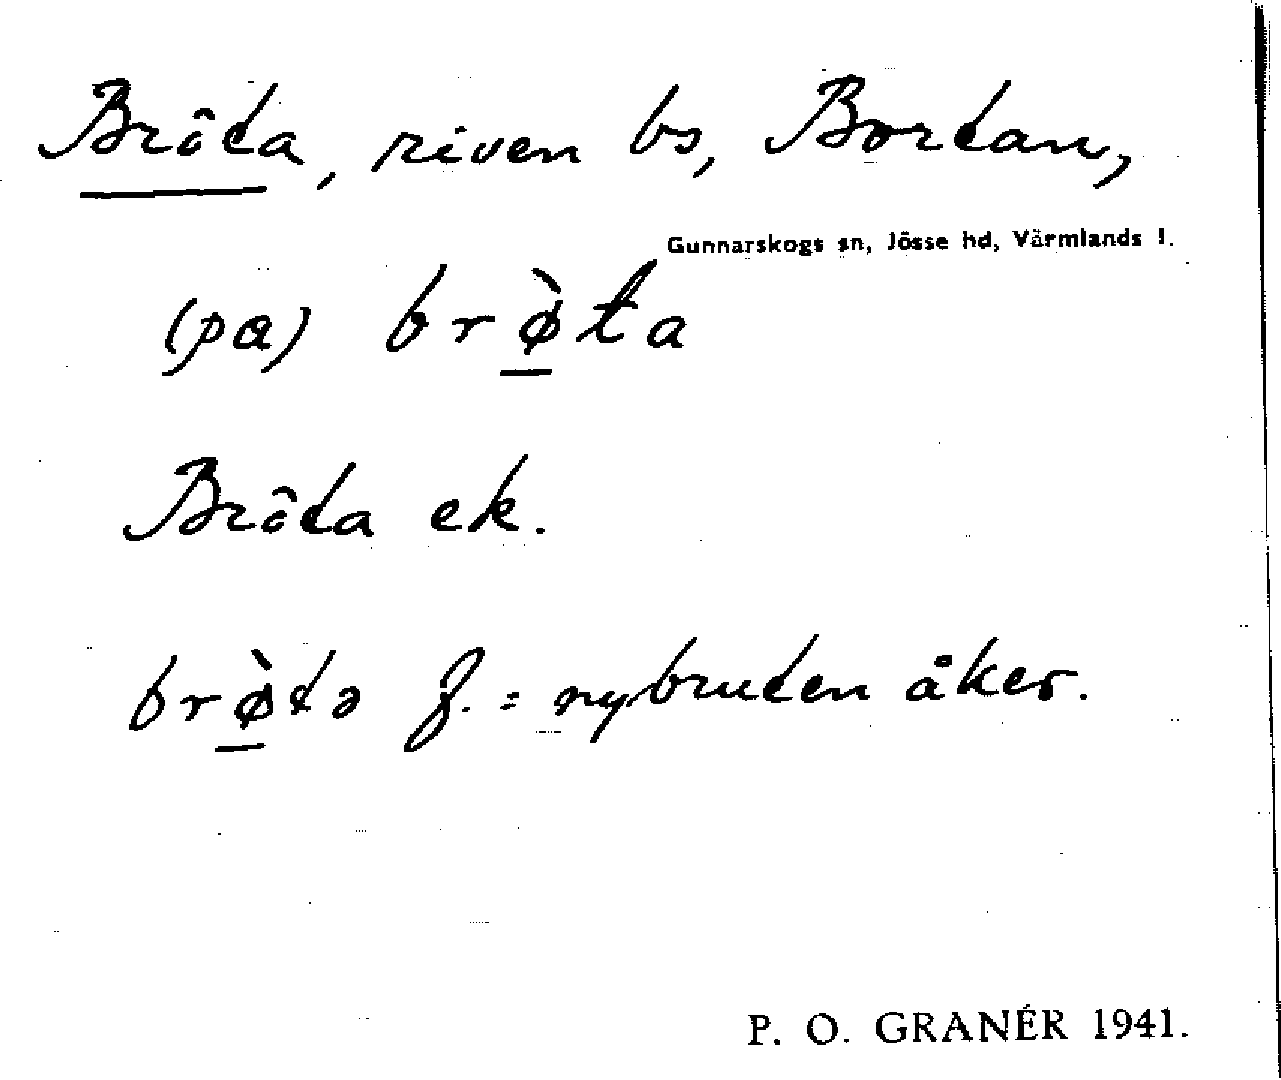 Bröta, riven bs, Bortan,
Gunnarskogs sn, Jösse hd, Värmlands l.
(pa) brø̀ta
Bröta ek.
brø̀tə f. = nybruten åker.
P. O. GRANÉR 1941.